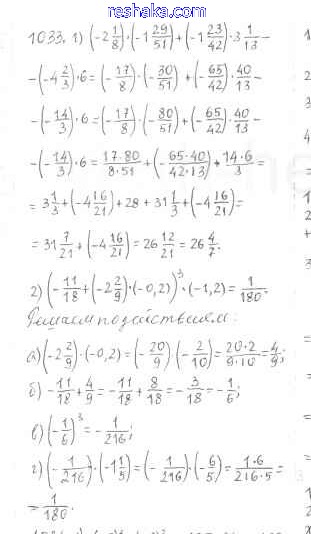 reshaka.com
1033. 1) (-2 1/8)·(-1 29/51)+(-1 23/42)·3 1/13-
-(-4 2/3)·6=(-17/8)·(-80/51)+(-65/42)·40/13-
-(-14/3)·6=(-17/8)·(-80/51)+(-65/42)·40/13-
-(-14/3)·6=17·80/8·51+(-65·40/42·13)+14·6/3=
=3 1/3+(-4 16/21)+28+31 1/3+(-4 16/21)=
=31 7/21+(-4 16/21)=26 12/21=26 4/7.
2) (-11/18+(-2 2/9)·(-0,2))³·(-1,2)=1/180.
Решаем по действиям:
а) (-2 2/9)·(-0,2)=(-20/9)·(-2/10)=20·2/9·10=4/9;
б) -11/18+4/9=-11/18+8/18=-3/18=-1/6;
в) (-1/6)³=-1/216;
г) (-1/216)·(-1 1/5)=(-1/216)·(-6/5)=1·6/216·5=
=1/180.